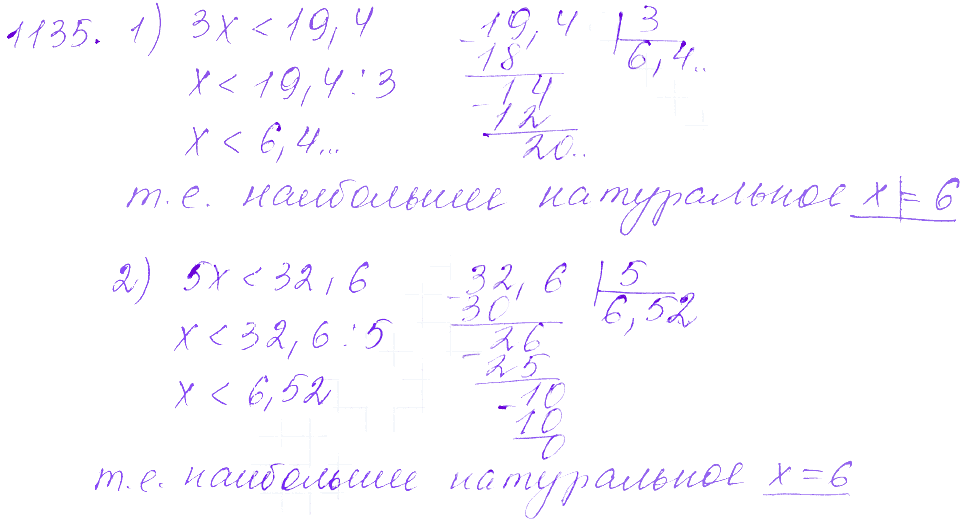 1135. 1) 3x < 19,4
x < 19,4 : 3
x < 6,4...
19,4 | 3
- 18 6,4..
14
- 12
20..
т.е. наибольшее натуральное x = 6
2) 5x < 32,6
x < 32,6 : 5
x < 6,52
32,6 | 5
- 30 6,52
26
- 25
10
- 10
0
т.е. наибольшее натуральное x = 6